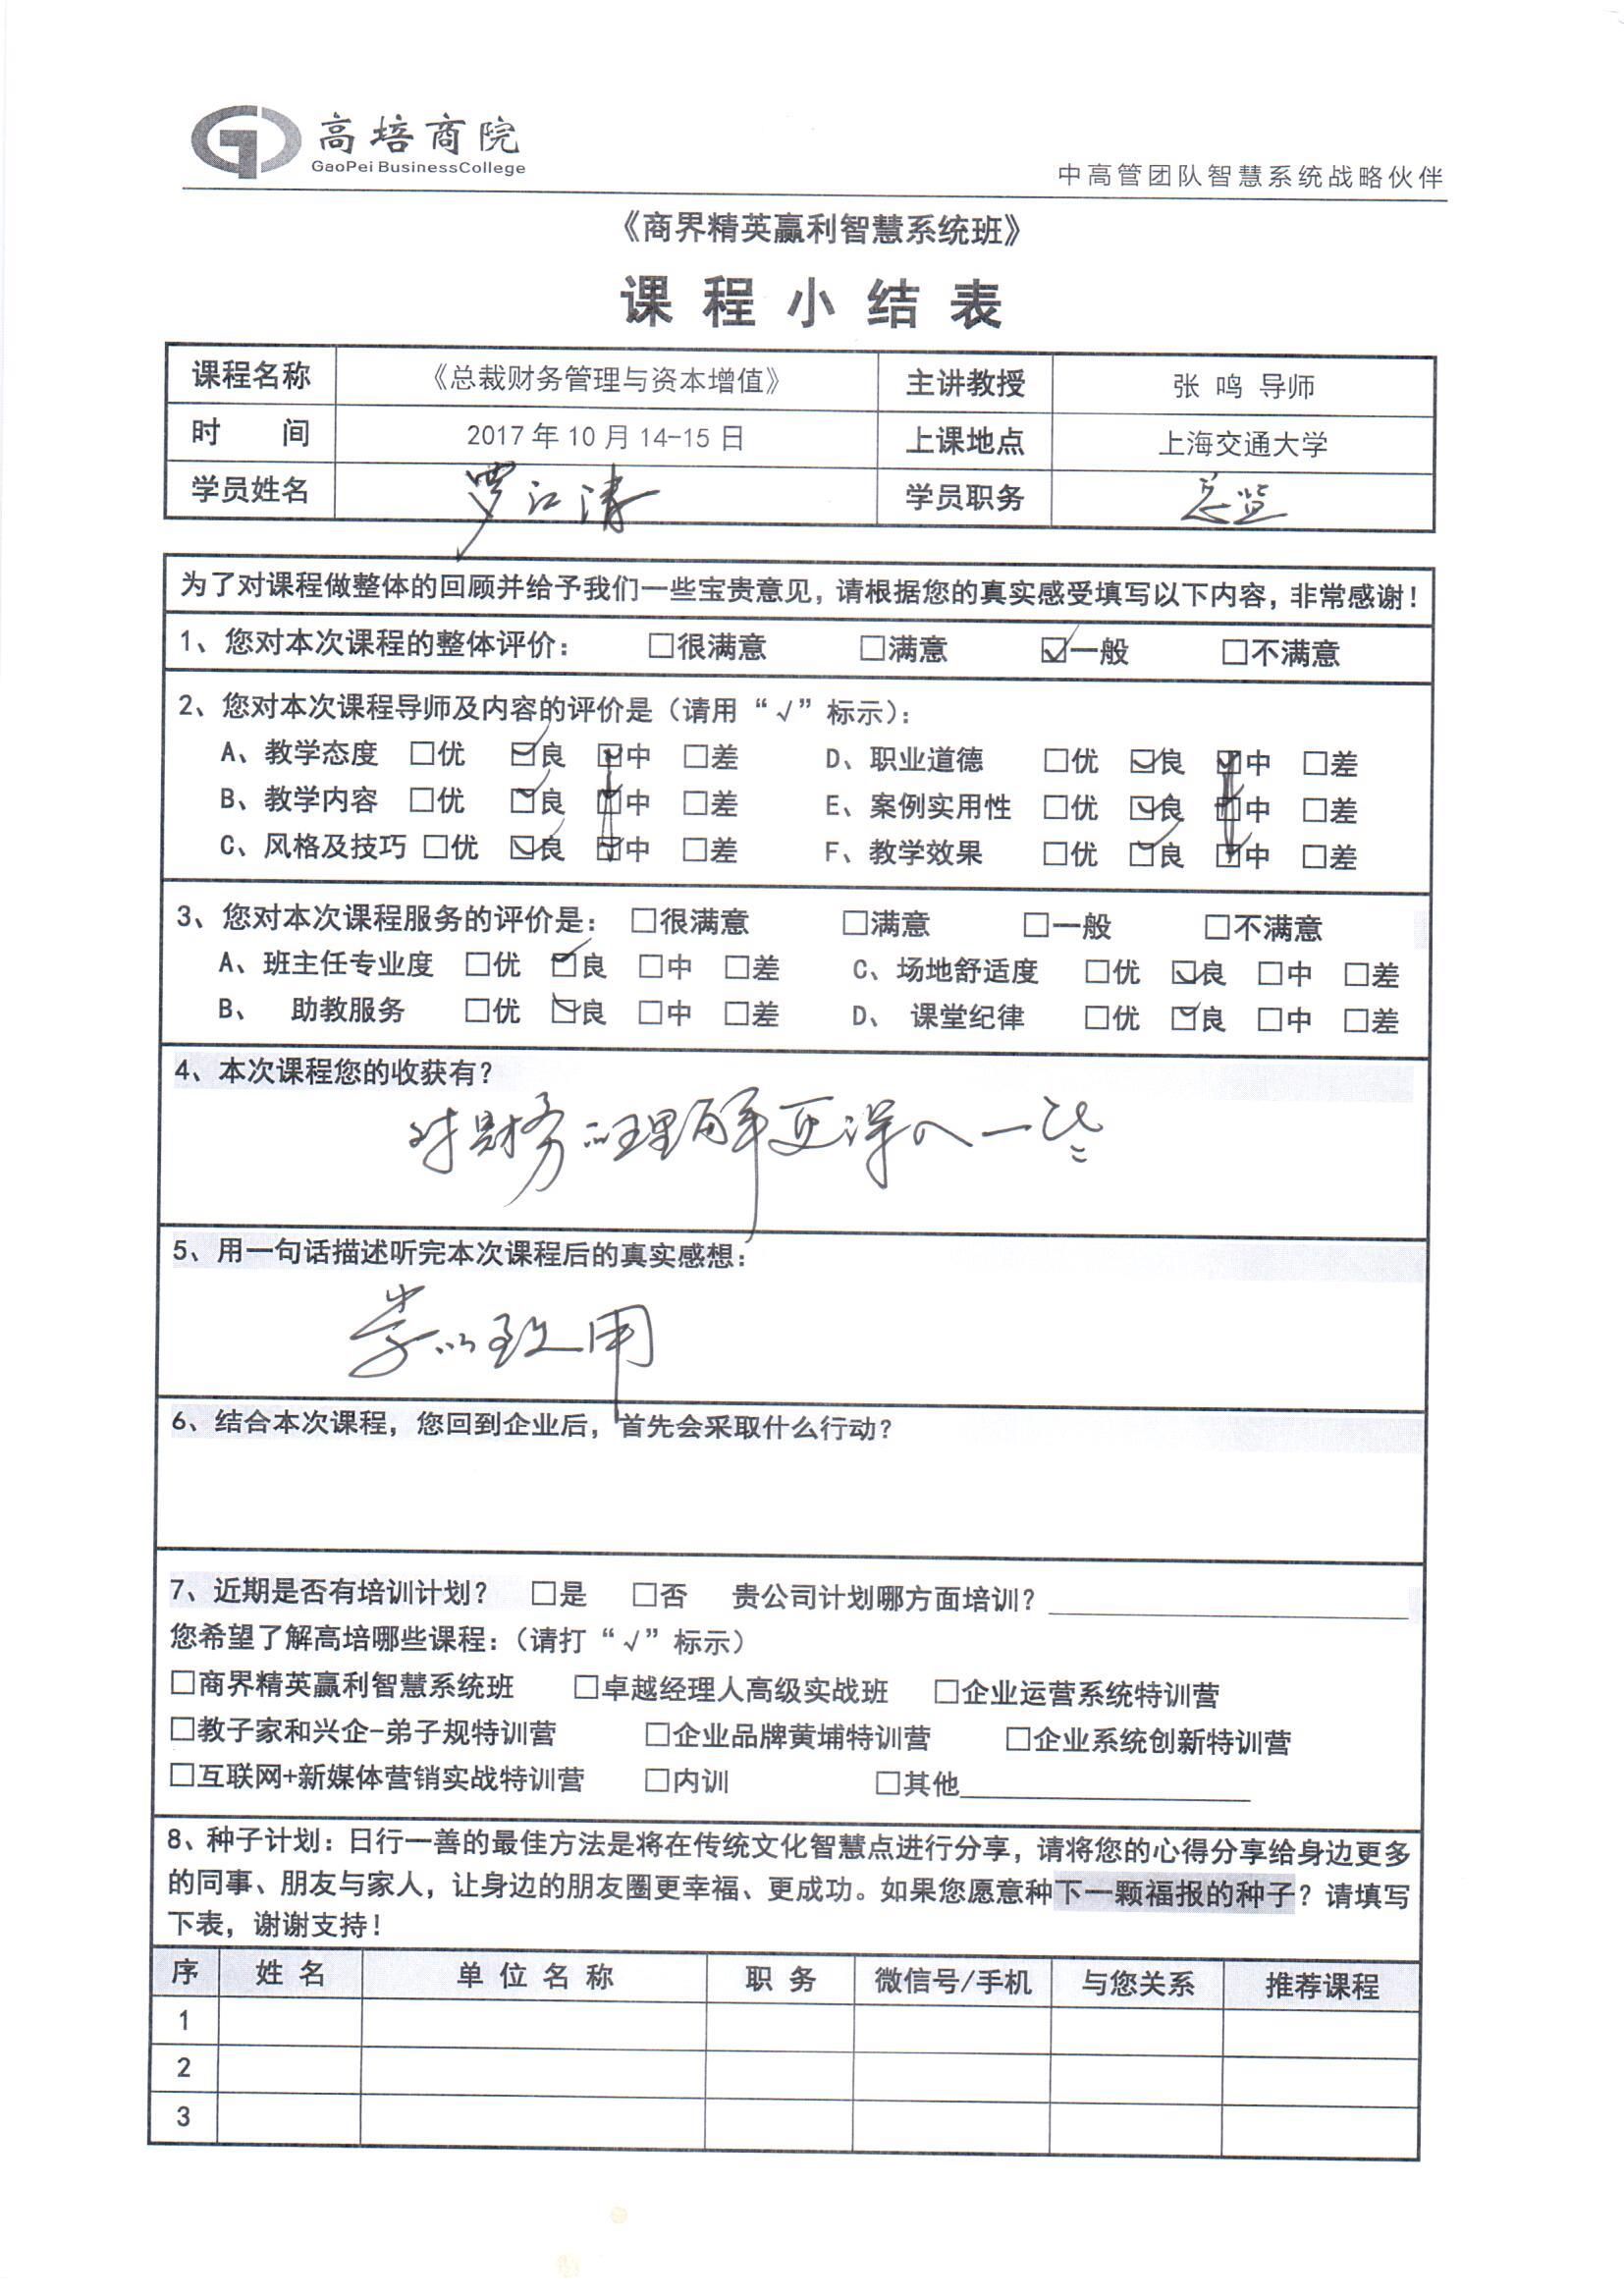 高培商院
GaoPei BusinessCollege
中高管团队智慧系统战略伙伴
《商界精英赢利智慧系统班》
课程小结表
课程名称 《总裁财务管理与资本增值》 主讲教授 张 鸣 导师
时 间 2017年10月14-15日 上课地点 上海交通大学
学员姓名 罗江涛 学员职务 总监
为了对课程做整体的回顾并给予我们一些宝贵意见，请根据您的真实感受填写以下内容，非常感谢！
1、您对本次课程的整体评价： □很满意 □满意 ☑一般 □不满意
2、您对本次课程导师及内容的评价是（请用“√”标示）：
A、教学态度 □优 ☑良 ☑中 □差 D、职业道德 □优 ☑良 ☑中 □差
B、教学内容 □优 ☑良 ☑中 □差 E、案例实用性 □优 ☑良 ☑中 □差
C、风格及技巧 □优 ☑良 ☑中 □差 F、教学效果 □优 ☑良 ☑中 □差
3、您对本次课程服务的评价是： □很满意 □满意 □一般 □不满意
A、班主任专业度 □优 ☑良 □中 □差 C、场地舒适度 □优 ☑良 □中 □差
B、 助教服务 □优 ☑良 □中 □差 D、 课堂纪律 □优 ☑良 □中 □差
4、本次课程您的收获有？
对财务的理解更深入一些
5、用一句话描述听完本次课程后的真实感想：
学以致用
6、结合本次课程，您回到企业后，首先会采取什么行动？
7、近期是否有培训计划？ □是 □否 贵公司计划哪方面培训？
您希望了解高培哪些课程：（请打“√”标示）
□商界精英赢利智慧系统班 □卓越经理人高级实战班 □企业运营系统特训营
□教子家和兴企-弟子规特训营 □企业品牌黄埔特训营 □企业系统创新特训营
□互联网+新媒体营销实战特训营 □内训 □其他
8、种子计划：日行一善的最佳方法是将在传统文化智慧点进行分享，请将您的心得分享给身边更多
的同事、朋友与家人，让身边的朋友圈更幸福、更成功。如果您愿意种下一颗福报的种子？请填写
下表，谢谢支持！
序 姓 名 单 位 名 称 职 务 微信号/手机 与您关系 推荐课程
1
2
3